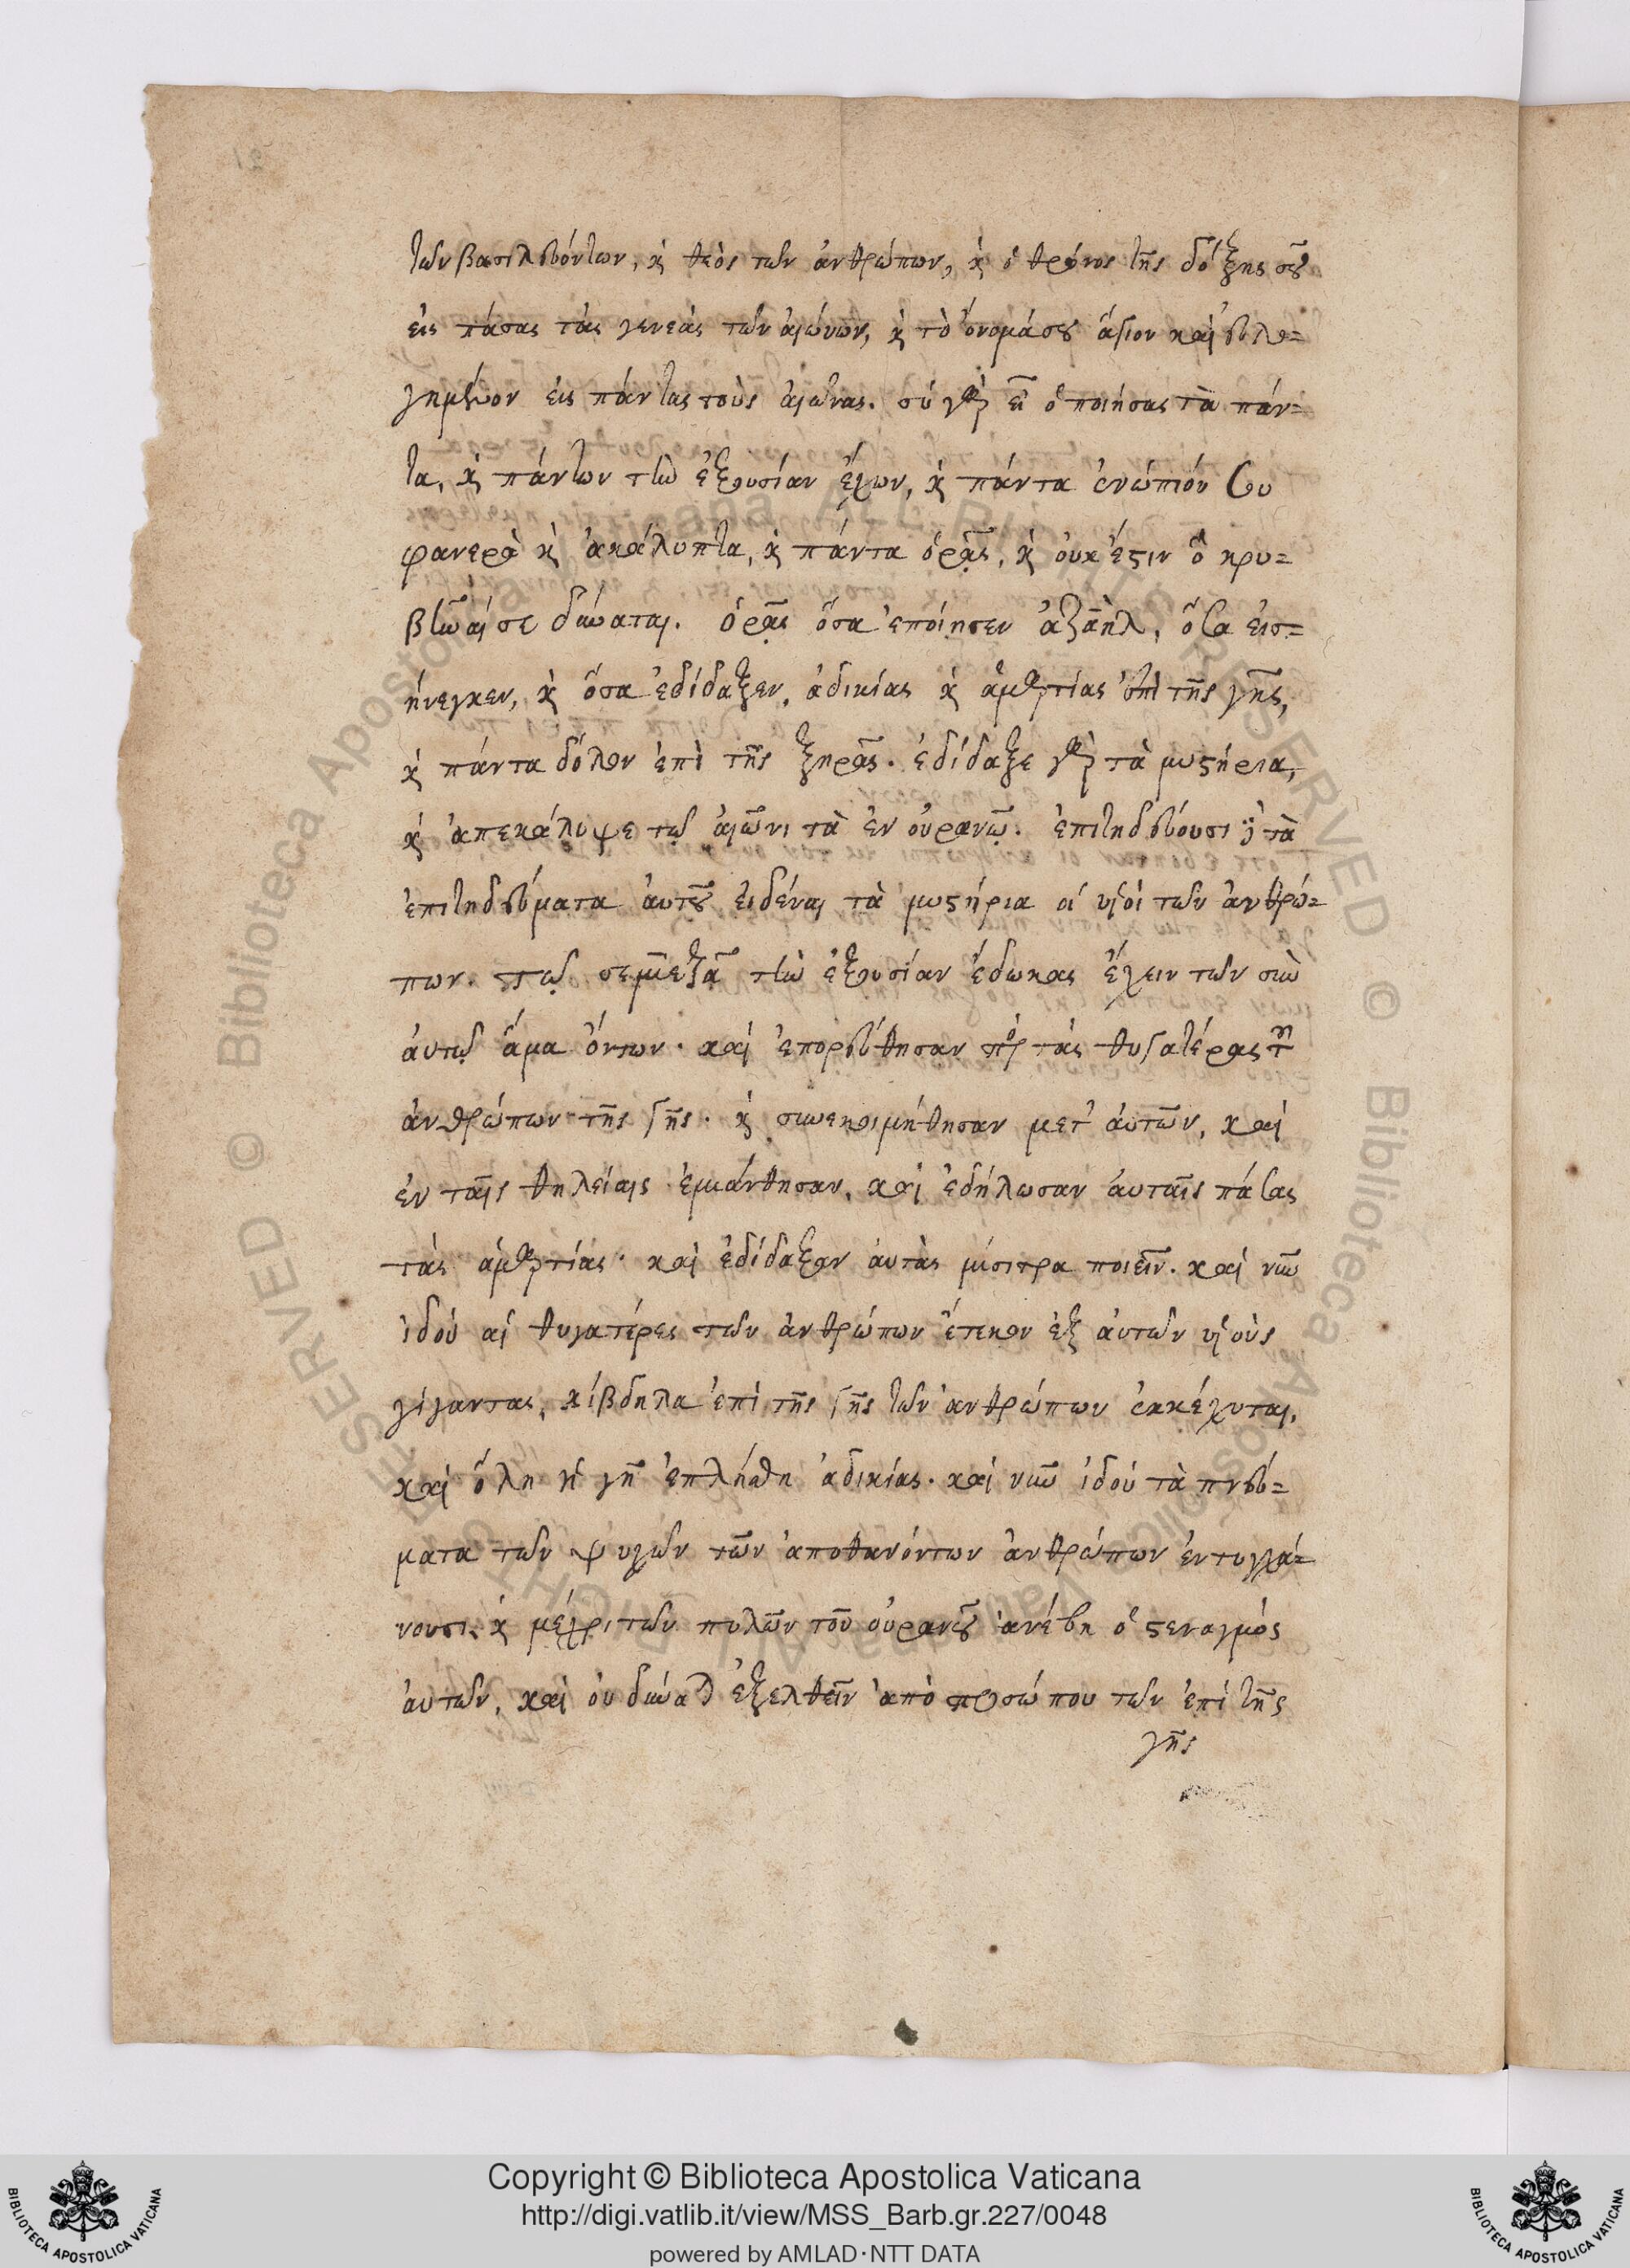 τῶν βασιλευόντων, κὶ θεὸς τῶν ἀνθρώπων, κὶ ὁ θρόνος τῆς δόξης σου
εἰς πάσας τὰς γενεὰς τῶν αἰώνων, κὶ τὸ ὄνομά σου ἅγιον καὶ εὐλο=
γημένον εἰς πάντας τοὺς αἰῶνας. σὺ γὰρ εἶ ὁ ποιήσας τὰ πάν=
τα, κὶ πάντων τὴν ἐξουσίαν ἔχων, κὶ πάντα ἐνώπιόν σου
φανερὰ κὶ ἀκάλυπτα, κὶ πάντα ὁρᾷς, κὶ οὐκ ἔστιν ὃ κρυ=
βῆναί σε δύναται. ὁρᾷς ὅσα ἐποίησεν ἀζαὴλ, ὅσα εἰσ=
ήνεγκεν, κὶ ὅσα ἐδίδαξεν, ἀδικίας κὶ ἁμαρτίας ἐπὶ τῆς γῆς,
κὶ πάντα δόλον ἐπὶ τῆς ξηρᾶς. ἐδίδαξε γὰρ τὰ μυστήρια,
κὶ ἀπεκάλυψε τῷ αἰῶνι τὰ ἐν οὐρανῷ. ἐπιτηδεύουσι δὲ τὰ
ἐπιτηδεύματα αὐτοῦ εἰδέναι τὰ μυστήρια οἱ υἱοὶ τῶν ἀνθρώ=
πων. τῷ σεμιεζᾶ τὴν ἐξουσίαν ἔδωκας ἔχειν τῶν σὺν
αὐτῷ ἅμα ὄντων. καὶ ἐπορεύθησαν πρὸς τὰς θυγατέρας τῶν
ἀνθρώπων τῆς γῆς. κὶ συνεκοιμήθησαν μετ' αὐτῶν, καὶ
ἐν ταῖς θηλείαις ἐμιάνθησαν, καὶ ἐδήλωσαν αὐταῖς πάσας
τὰς ἁμαρτίας. καὶ ἐδίδαξαν αὐτὰς μίσιτρα ποιεῖν. καὶ νῦν
ἰδοὺ αἱ θυγατέρες τῶν ἀνθρώπων ἔτεκον ἐξ αὐτῶν υἱοὺς
γίγαντας, κίβδηλα ἐπὶ τῆς γῆς τῶν ἀνθρώπων ἐκκέχυται,
καὶ ὅλη ἡ γῆ ἐπλήθη ἀδικίας. καὶ νῦν ἰδοὺ τὰ πνεύ=
ματα τῶν ψυχῶν τῶν ἀποθανόντων ἀνθρώπων ἐντυγχά=
νουσι, κὶ μέχρι τῶν πυλῶν τοῦ οὐρανοῦ ἀνέβη ὁ στεναγμὸς
αὐτῶν, καὶ οὐ δύναται ἐξελθεῖν ἀπὸ προσώπου τῶν ἐπὶ τῆς
γῆς
Copyright © Biblioteca Apostolica Vaticana
http://digi.vatlib.it/view/MSS_Barb.gr.227/0048
powered by AMLAD·NTT DATA
BIBLIOTECA APOSTOLICA VATICANA
BIBLIOTECA APOSTOLICA VATICANA